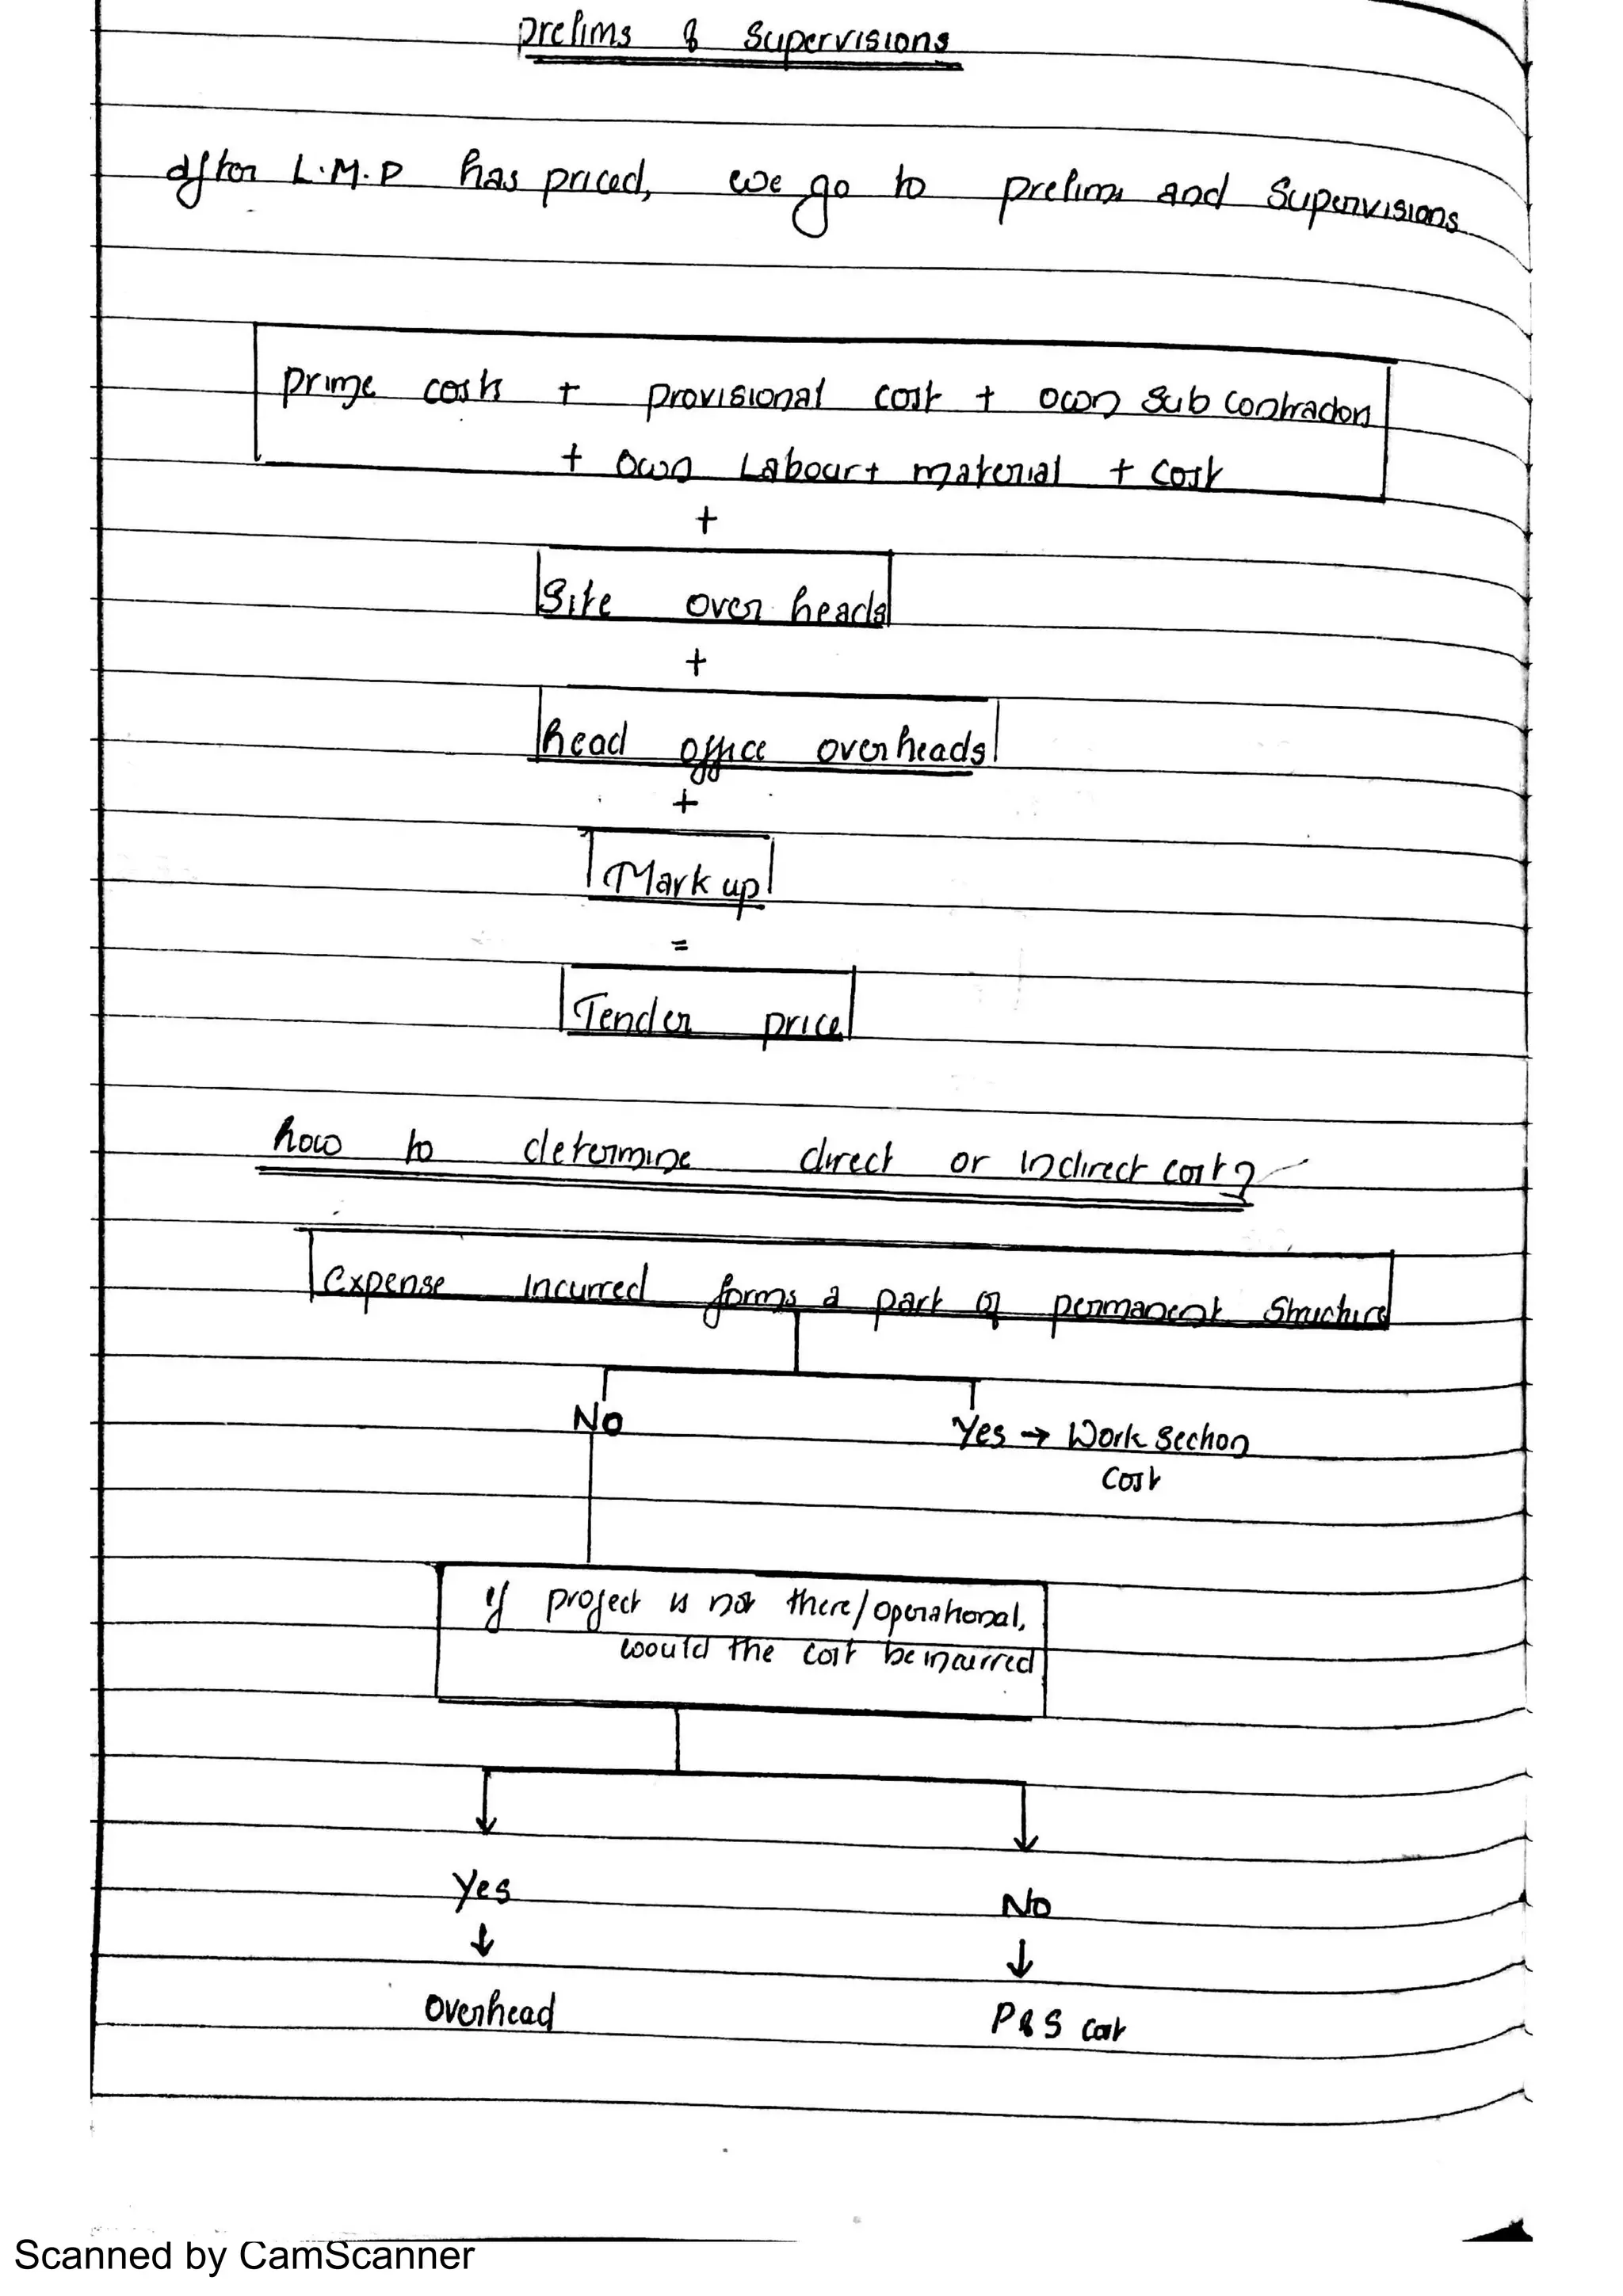 Prelims & Supervisions
after L.M.P has priced, we go to prelims and Supervisions
Prime costs + provisional cost + own Sub Contractors
+ own Labour + material + cost
+
Site over heads
+
head office overheads
+
Mark up
=
Tender price
how to determine direct or indirect cost?
expense incurred forms a part of permanent structure
No
Yes → Work section
cost
if project is not there/operational,
would the cost be incurred
Yes
No
↓
↓
Overhead
P & S cost
Scanned by CamScanner